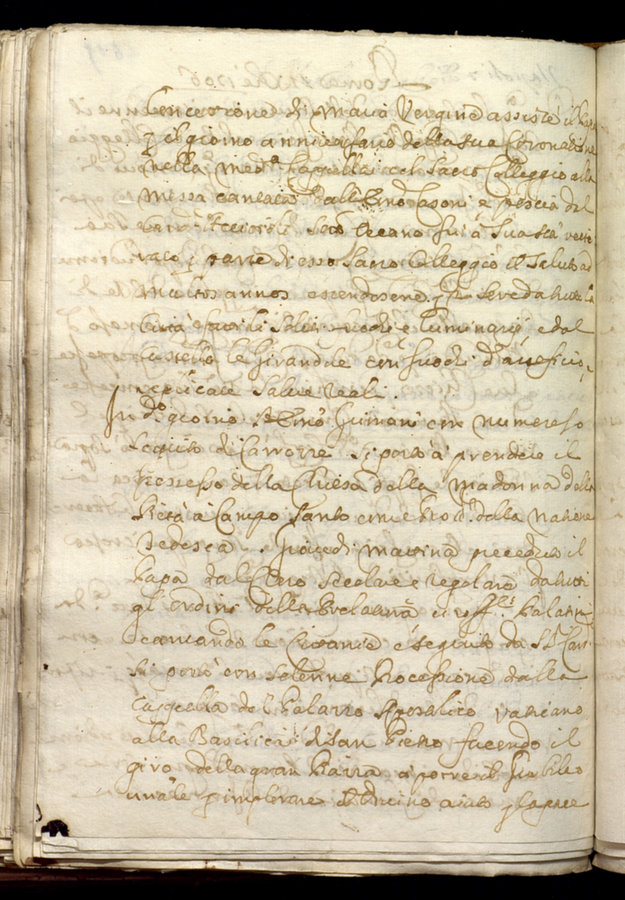 Concezzione di Maria Vergine assistè il Papa
p il giorno anniversario della sua Coronatione
nella med.ª Cappella col Sacro Colleggio alla
messa cantata dall Emõ Casoni e poscia dal
Card.ˡ Acciaioli Decano fù à Sua Stà
p parte di esso Sacro Colleggio il saluto ad
multos annos essendosene p la
Città fatti li soliti fuochi e luminarij e dal
Castello le Girandole con fuochi d'arteficio,
replicate salve reali
In d.º giorno Emõ Grimani con numeroso
seguito di Carrozze si portò à prendere il
possesso della Chiesa della Madonna della
Pietà à Campo Santo come della Natione
Tedesca. Giovedi mattina preceduto il
Papa dal Clero secolare e regolare da tutti
gl'ordini della Prelatura Palatini
cantando le Litanie e seguito da S.ri Card.
si portò con solenne Processione dalla
Cappella del Palazzo Apostolico Vaticano
alla Basilica di San Pietro facendo il
giro della gran Piazza Giubileo
p implorare il divino aiuto p la pace